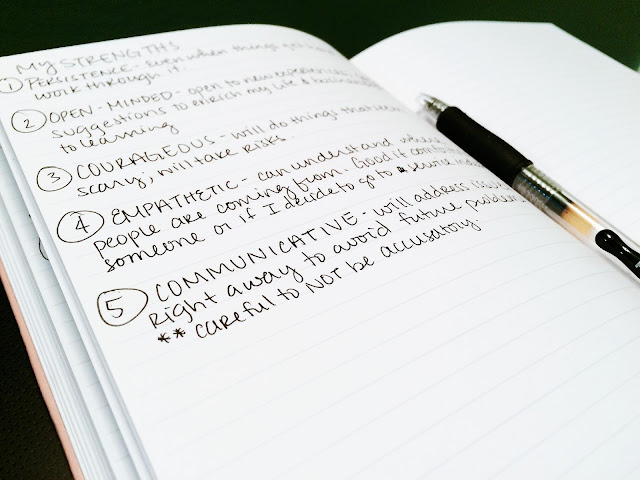 MY STRENGTHS
① PERSISTENCE - Even when things get
work through it.
② OPEN-MINDED - open to new experiences
suggestions to enrich my life &
to learning
③ COURAGEOUS - will do things that
scary, will take risks.
④ EMPATHETIC - can understand
people are coming from. Good if
someone or if I decide to go to
⑤ COMMUNICATIVE - will address
Right away to avoid future
** careful to NOT be accusatory